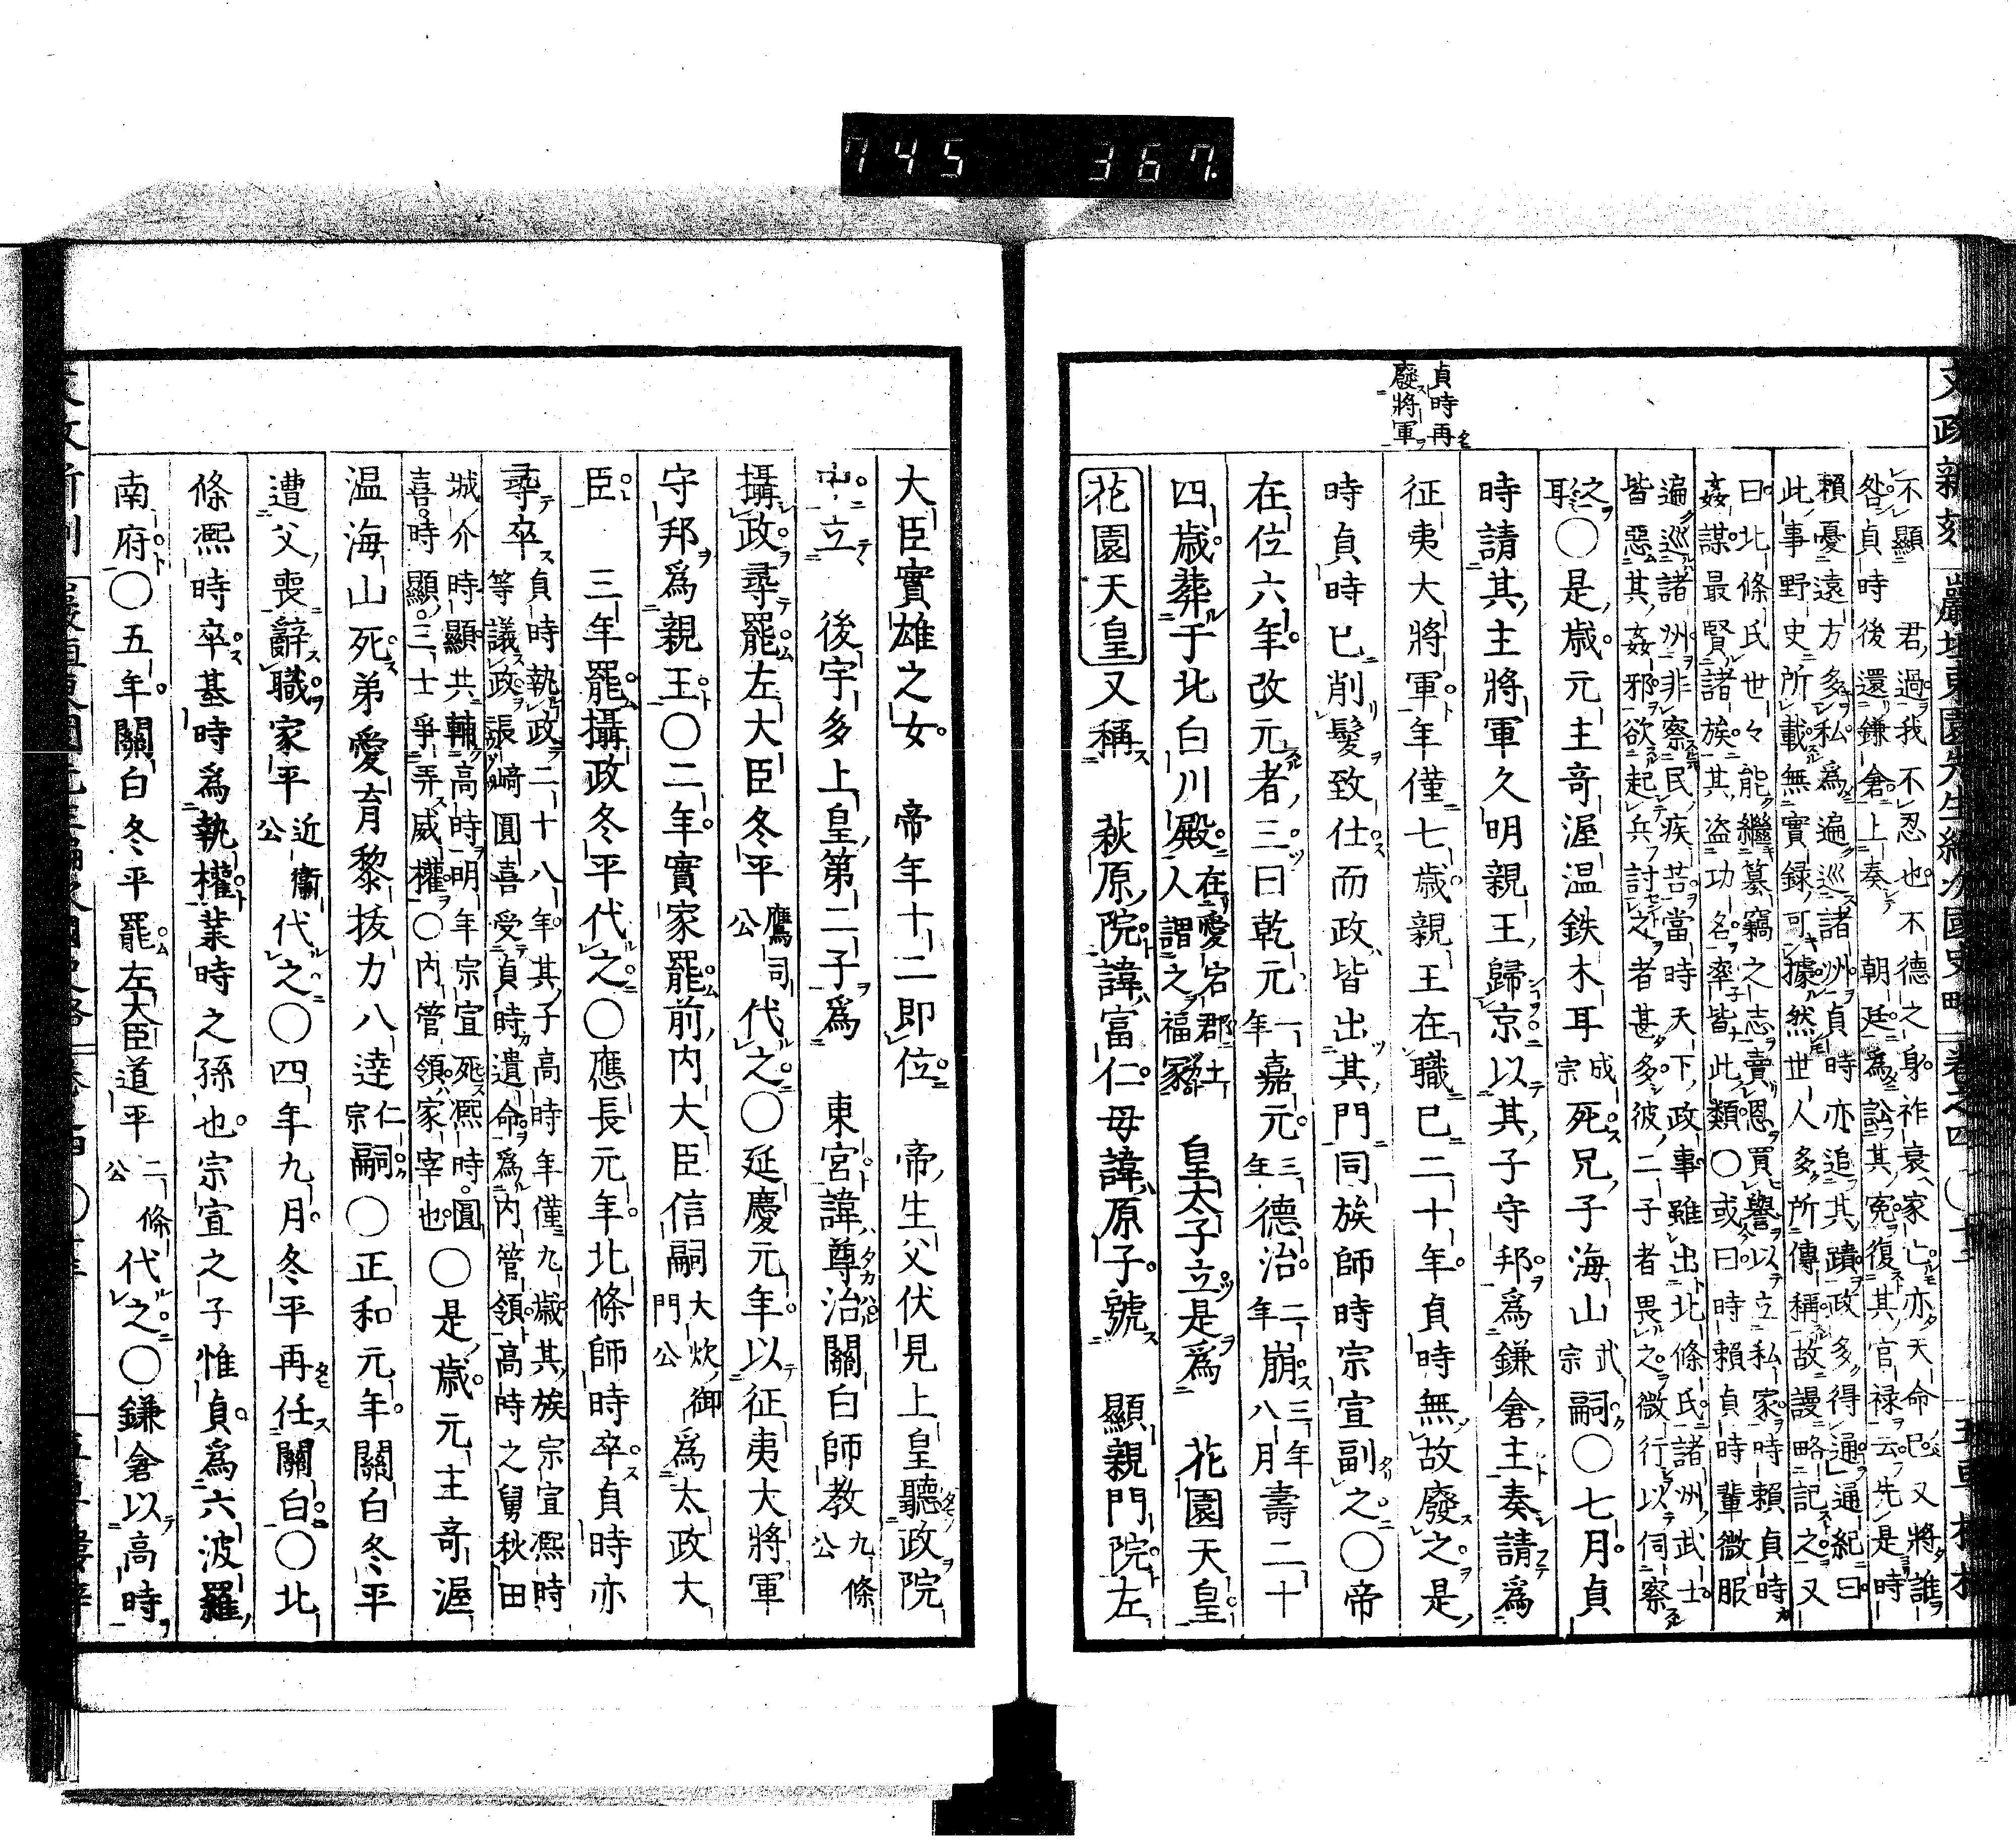 745 367
貞時再
廢將軍
文政新刻 巖垣東園先生編次國史略 卷之四
不顯 君過我不忍也不德之身祚衰家亡亦天命已又將誰
咎貞時後還鎌倉上奏 朝廷爲訟其寃復其官祿云先是時
賴憂遠方多私爲遍巡諸州貞時亦追其蹟政多得通通紀曰
此事野史所載無實録可據然世人多所傳稱故謾略記之又
曰北條氏世々能繼簒竊之志賣恩買譽以立私家時賴貞時
姦謀最賢諸族其盜功名率皆此類〇或曰時賴貞時輩微服
遍巡諸州非察民疾苦當時天下政事雖出北條氏諸洲武士
皆惡其姦邪欲起兵討之者甚多彼二子者畏之微行以伺察
之耳〇是歳元主竒渥温鉄木耳成宗死兄子海山武宗嗣〇七月貞
時請其主將軍久明親王歸京以其子守邦爲鎌倉主奏請爲
征夷大將軍年僅七歳親王在職已二十年貞時無故廢之是
時貞時已削髮致仕而政皆出其門同族師時宗宣副之〇帝
在位六年改元者三曰乾元一年嘉元三年德治二年崩三年八月壽二十
四歳葬于北白川殿在愛宕郡土人謂之福冢 皇太子立是爲 花園天皇
花園天皇又稱 萩原院諱富仁母諱原子號 顯親門院左
大臣實雄之女 帝年十二即位 帝生父伏見上皇聽政院
中立 後宇多上皇第二子爲 東宮諱尊治關白師教九條公
攝政尋罷左大臣冬平鷹司公代之〇延慶元年以征夷大將軍
守邦爲親王〇二年實家罷前内大臣信嗣大炊御門公爲太政大
臣 三年罷攝政冬平代之〇應長元年北條師時卒貞時亦
尋卒貞時執政二十八年其子高時年僅九歳其族宗宣凞時
等議政張﨑圓喜受貞時遺命爲内管領高時之舅秋田
城介時顯共輔高時明年宗宣死凞時圓
喜時顯三士爭弄威權〇内管領家宰也〇是歳元主竒渥
温海山死弟愛育黎拔力八達仁宗嗣〇正和元年關白冬平
遭父喪辭職家平近衞公代之〇四年九月冬平再任關白〇北
條凞時卒基時爲執權業時之孫也宗宣之子惟貞爲六波羅
南府〇五年關白冬平罷左大臣道平二條公代之〇鎌倉以高時